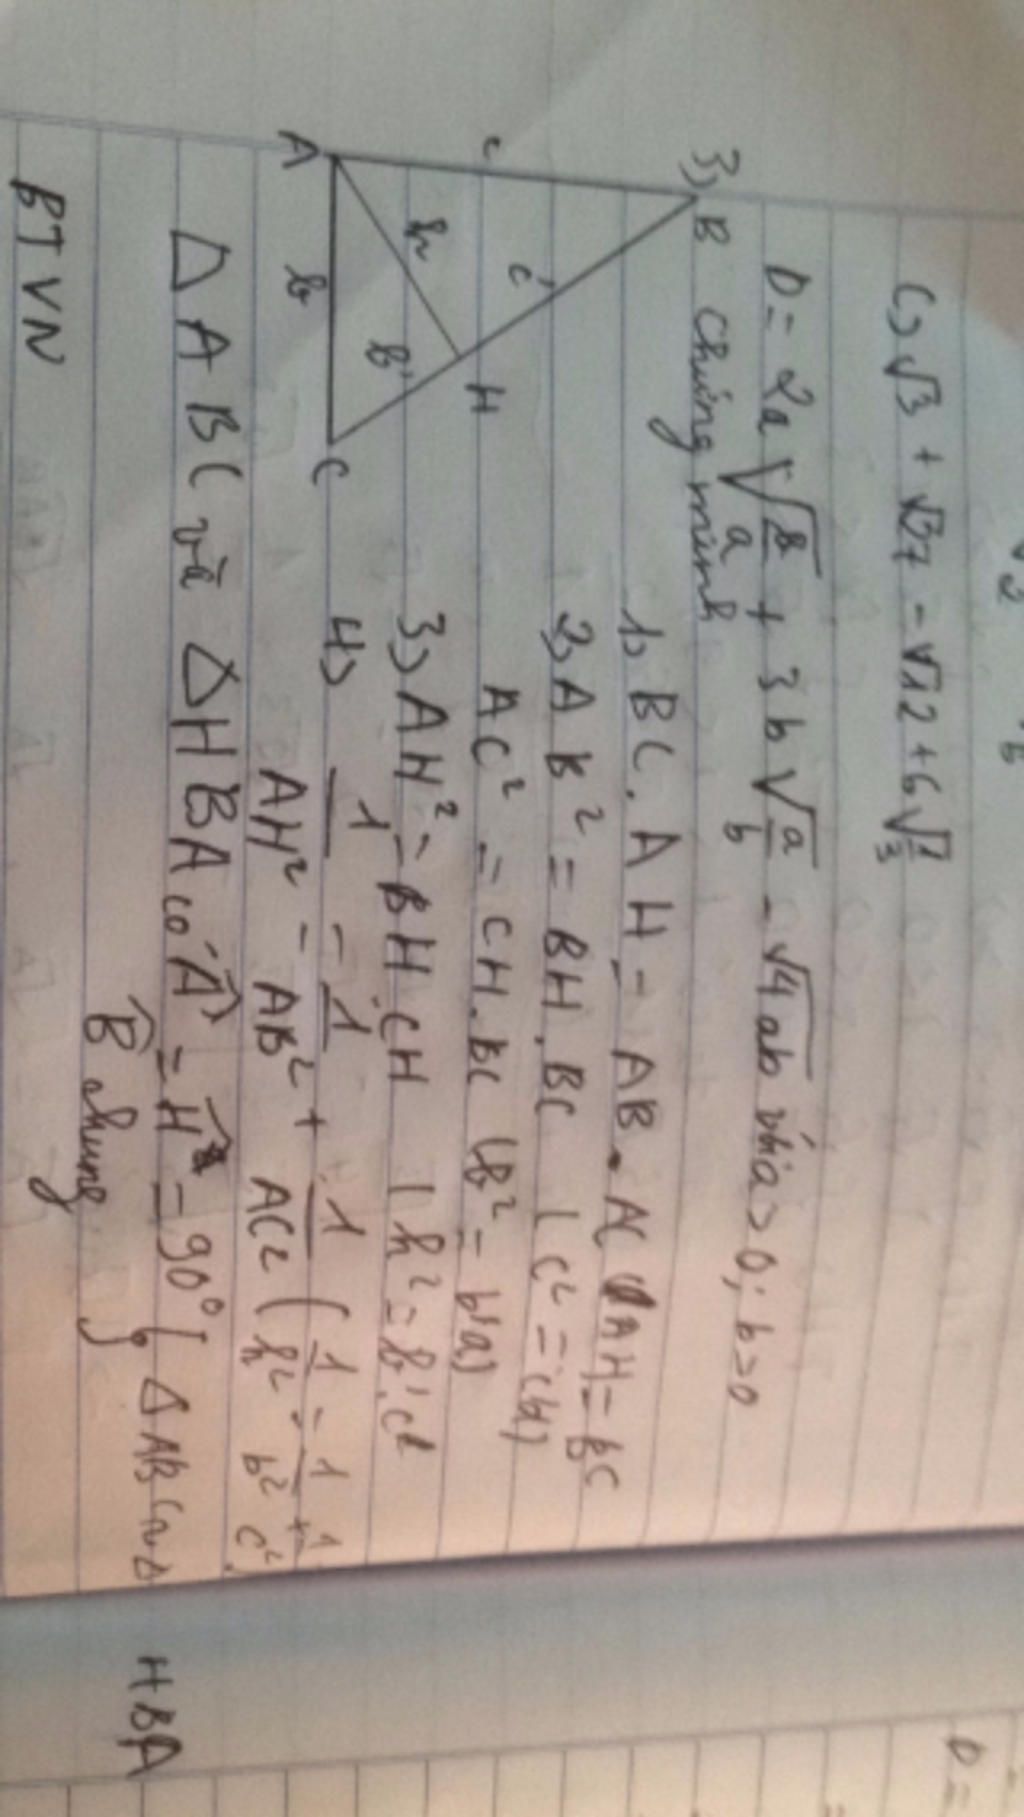 C, √3 + √27 - √12 + 6√1/3
D = 2a√b/a + 3b√a/b - √4ab với a > 0; b > 0
3, B chứng minh
1, BC . AH = AB . AC (AH = bc
2, AB² = BH . BC (c² = c'a)
AC² = CH . BC (b² = b'a)
3, AH² = BH . CH (h² = b'.c'
4, 1/AH² = 1/AB² + 1/AC² (1/h² = 1/b² + 1/c²)
c
c'
H
h
b'
A
b
C
Δ ABC và Δ HBA có Â = Ĥ = 90° } Δ ABC ~ Δ HBA
B̂ chung
BTVN
D =